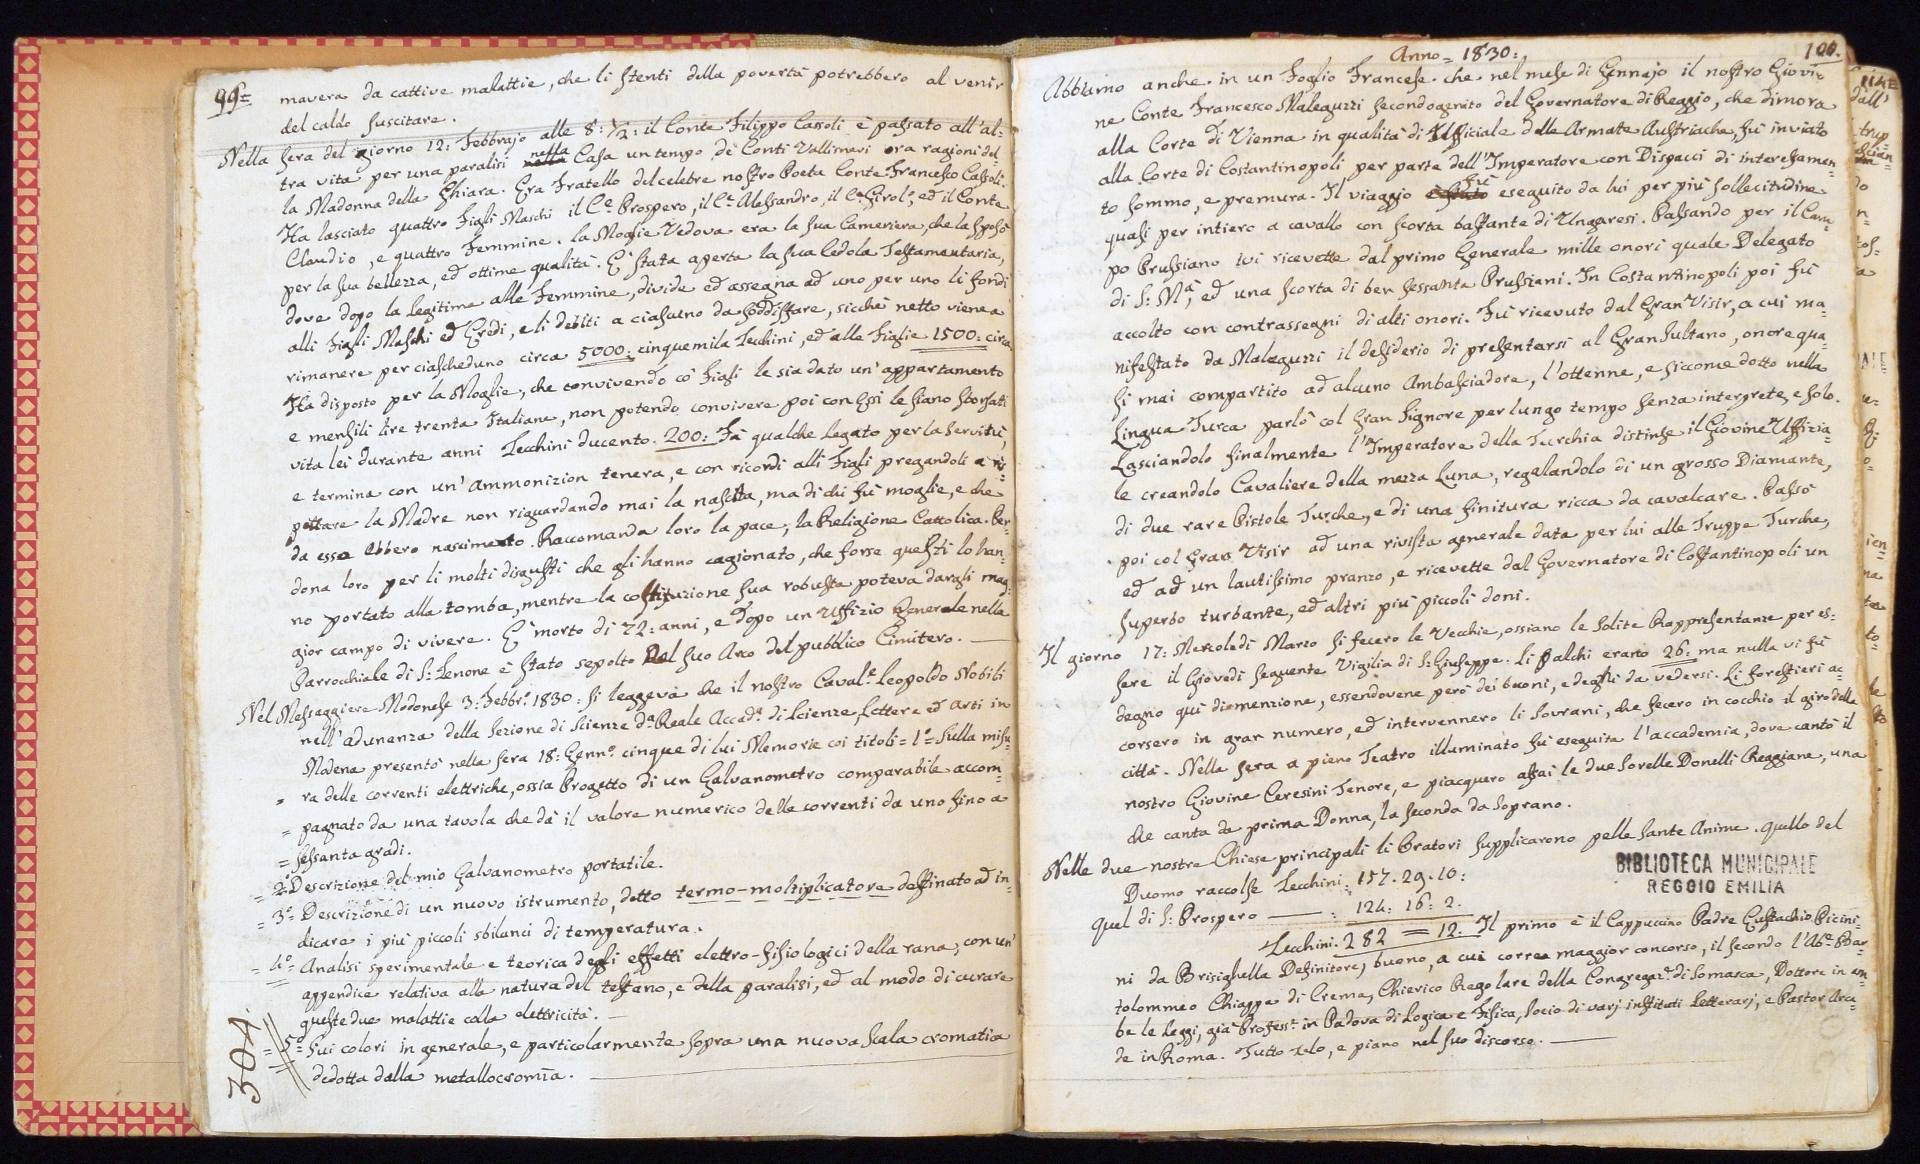 99=
mavera da cattive malattie, che li stenti della povertà potrebbero al venir
del caldo suscitare.
Nella sera del giorno 12: Febbrajo alle 8: ½: il Conte Filippo Cassoli è passato all'al-
tra vita per una paralisi nella Casa un tempo de Conti Vallisneri ora ragioni del-
la Madonna della Ghiara. Era Fratello del celebre nostro Poeta Conte Francesco Cassoli.
Ha lasciato quattro Figli Maschi il C.e Prospero, il C.e Alessandro, il C.e Girol.o, ed il Conte
Claudio, e quattro Femmine. La Moglie Vedova era la sua Cameriera, che la sposò
per la sua bellezza, ed ottime qualità. E' stata aperta la sua Cedola Testamentaria,
dove dopo la legitima alle Femmine, divide ed assegna ad uno per uno li fondi
alli Figli Maschi ed Eredi, e li debiti a ciascuno da soddisfare, sicchè netto viene a
rimanere per ciascheduno circa 5000: cinquemila Zecchini, ed alle Figlie 1500: circa.
Ha disposto per la Moglie, che convivendo co' Figli le sia dato un' appartamento
e mensili lire trenta Italiane, non potendo convivere poi con Essi le siano sborsati
vita lei durante anni Zecchini ducento. 200: Fà qualche Legato per la servitù,
e termina con un' ammonizion tenera, e con ricordi alli Figli pregandoli a ris-
pettare la Madre non riguardando mai la nascita, ma di chi fù moglie, e che
da essa ebbero nascimento. Raccomanda loro la pace, la Religione Cattolica. Per-
dona loro per li molti disgusti che gli hanno cagionato, che forse questi lo han-
no portato alla tomba, mentre la costituzione sua robusta poteva dargli mag-
gior campo di vivere. E' morto di 72: anni, e dopo un Uffizio Generale nella
Parrocchiale di S: Zenone è stato sepolto Nel suo Arco del pubblico Cimitero.
Nel Messaggiere Modonese 3: Febbr.o 1830: si leggeva che il nostro Caval.e Leopoldo Nobili
nell'adunanza della Sezione di Scienze d.a Reale Accad.a di Scienze, Lettere ed Arti in
Modena presentò nella sera 18: Genn.o cinque di lui Memorie coi titoli = 1.o = Sulla misu-
= ra delle correnti elettriche, ossia Progetto di un Galvanometro comparabile accom-
= pagnato da una tavola che dà il valore numerico delle correnti da uno fino a
= sessanta gradi.
= 2.o Descrizione del mio Galvanometro portatile.
= 3.o = Descrizione di un nuovo istrumento, detto termo-moltiplicatore destinato ad in-
dicare i più piccoli sbilanci di temperatura.
= 4.o = Analisi sperimentale e teorica degli effetti elettro-fisiologici della rana, con un'
appendice relativa alla natura del tettano, e della paralisi, ed al modo di curare
queste due malattie colla elettricità.
= 5.o = Sui colori in generale, e particolarmente sopra una nuova Scala cromatica
dedotta dalla metallocromìa.
304.
Anno = 1830:
100.
Abbiamo anche in un Foglio Francese che nel mese di Gennajo il nostro Giovi-
ne Conte Francesco Maleguzzi secondogenito del Governatore di Reggio, che dimora
alla Corte di Vienna in qualità di Ufficiale delle Armate Austriache, fù inviato
alla Corte di Costantinopoli per parte dell'Imperatore con Dispacci di interessamen-
to sommo, e premura. Il viaggio fù eseguito da lui per più sollecitudine
quasi per intiero a cavallo con scorta bastante di Ungaresi. Passando per il Cam-
po Prussiano ivi ricevette dal primo Generale mille onori quale Delegato
di S: M.a, ed una scorta di ben sessanta Prussiani. In Costantinopoli poi fù
accolto con contrassegni di alti onori. Fù ricevuto dal Gran Visir, a cui ma-
nifestato da Maleguzzi il desiderio di presentarsi al Gran Sultano, onore qua-
si mai compartito ad alcuno Ambasciadore, l'ottenne, e siccome dotto nella
Lingua Turca parlò col Gran Signore per lungo tempo senza interprete, e solo.
Lasciandolo finalmente l'Imperatore della Turchia distinse il Giovine Uffizia-
le creandolo Cavaliere della mezza Luna, regalandolo di un grosso Diamante,
di due rare Pistole Turche, e di una finitura ricca da cavalcare. Passò
poi col Gran Visir ad una rivista generale data per lui alle Truppe Turche,
ed ad un lautissimo pranzo, e ricevette dal Governatore di Costantinopoli un
superbo turbante, ed altri più piccoli doni.
Il giorno 17: Mercoledì Marzo si fecero le Vecchie, ossiano le solite Rappresentanze per es-
sere il Giovedì seguente Vigilia di S: Giuseppe. Li Palchi erano 26: ma nulla vi fù
degno quì di menzione, essendovene però dei buoni, e degni da vedersi. Li forestieri ac-
corsero in gran numero, ed intervennero li Sovrani, che fecero in cocchio il giro della
città. Nella sera a pieno Teatro illuminato fù eseguita l'accademia, dove cantò il
nostro Giovine Ceresini Tenore, e piacquero assai le due Sorelle Donelli Reggiane, una
che canta da prima Donna, la seconda da soprano.
Nelle due nostre Chiese principali li Oratori supplicarono pelle Sante Anime. Quello del
Duomo raccolse Zecchini: 157. 29. 10:
Quel di S: Prospero : 124: 16: 2.
Zecchini. 282 = 12. Il primo è il Cappuccino Padre Eustachio Picini-
ni da Brisighella Definitore, buono, a cui correa maggior concorso, il secondo l'Ab.e Bar-
tolommeo Chiappa di Crema, Chierico Regolare della Congregaz.e di Somasca, Dottore in am-
be le Leggi, già Profess.e in Padova di Logica e Fisica, Socio di varj instituti Letterarj, e Pastor Arca-
de in Roma. Tutto zelo, e piano nel suo discorso.
BIBLIOTECA MUNICIPALE
REGGIO EMILIA